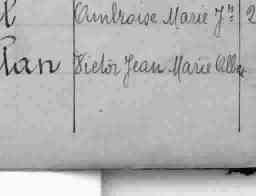 Ambroise Marie Jn 2
lan Victor Jean Marie Alb